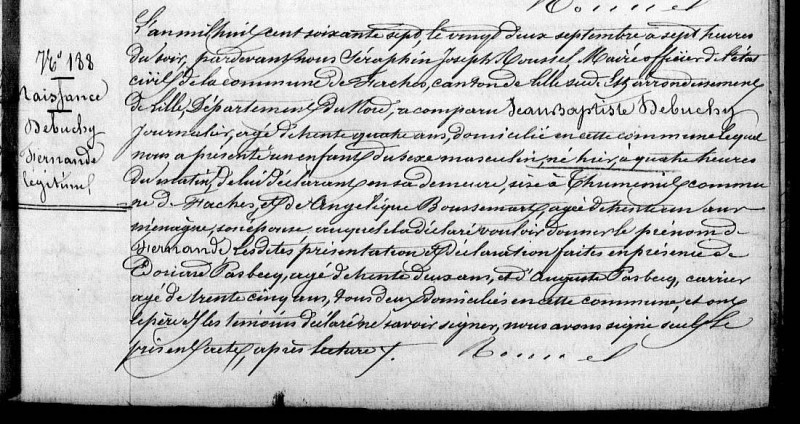 Roussel
N° 188
Naissance
Debuchy
Fernande
légitime
L'an mil huit cent soixante sept, le vingt deux septembre a sept heures
du soir, pardevant nous Séraphin Joseph Roussel Maire officier de l'état
civil de la commune de Faches, canton de Lille sud-Est arrondissement
de Lille, Département du Nord, a comparu Jean Baptiste Debuchy
journalier, agé de trente quatre ans, domicilié en cette commune lequel
nous a présenté un enfant du sexe masculin, né hier, a quatre heures
du matin, de lui déclarant en sa demeure, sise à Thumenil commu
ne de Faches, et de Angélique Boussemart, agée de trente un ans
ménagère, son épouse auquel il a déclaré vouloir donner le prénom de
Fernande. Lesdites présentation et déclaration faites en présence de
Edouard Pasbecq, agé de trente deux ans, et d'Auguste Pasbecq, carrier
agé de trente cinq ans, tous deux domiciliés en cette commune, et ont
le père et les témoins déclaré ne savoir signer, nous avons signé seul le
présent acte, après lecture /.
Roussel